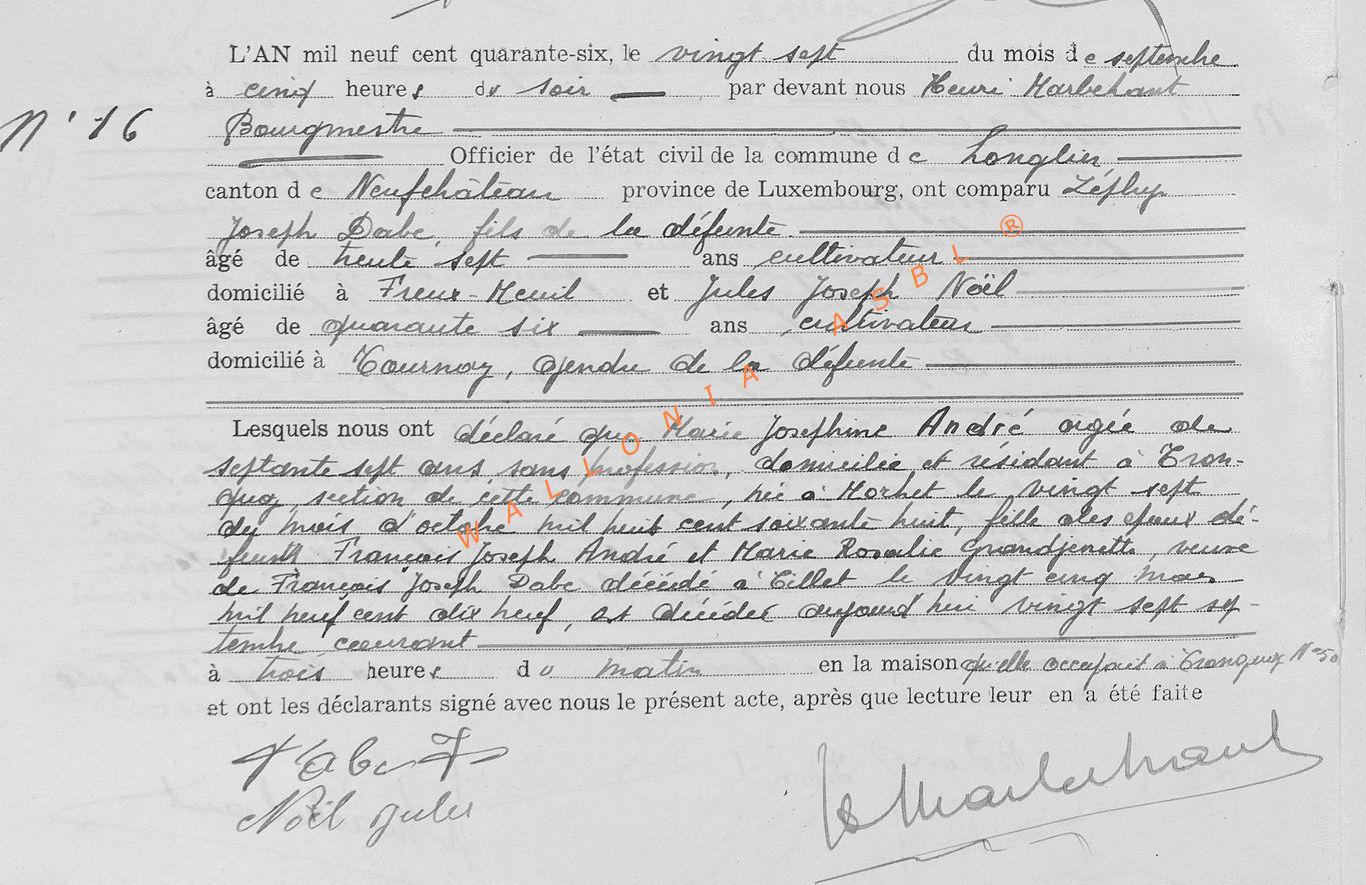 L'AN mil neuf cent quarante-six, le vingt sept du mois de septembre
à cinq heures du soir par devant nous Henri Marbehant
N° 16 Bourgmestre
Officier de l'état civil de la commune de Longlier
canton de Neufchâteau province de Luxembourg, ont comparu Zéphyr
Joseph Dabe, fils de la défunte
âgé de trente sept ans cultivateur
domicilié à Freux-Menil et Jules Joseph Noël
âgé de quarante six ans cultivateur
domicilié à Tournay, gendre de la défunte
Lesquels nous ont déclaré que Marie Josephine André agée de
septante sept ans, sans profession, domiciliée et résidant à Tron-
quoy, section de cette commune, née à Morhet le vingt sept
du mois d'octobre mil huit cent soixante huit, fille des époux dé-
funts François Joseph André et Marie Rosalie Grandjenette, veuve
de François Joseph Dabe décédé à Tillet le vingt cinq mars
mil neuf cent dix neuf, est décédée aujourd'hui vingt sept sep-
tembre courant
à trois heures du matin en la maison qu'elle occupait à Tronquoy N° 50
et ont les déclarants signé avec nous le présent acte, après que lecture leur en a été faite
Noël Jules
H Marbehant
WALLONIA ASBL ®